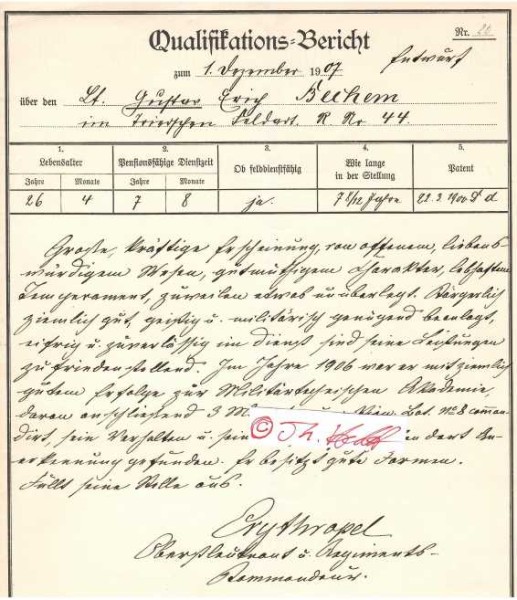 Nr. 20
Qualifikations-Bericht
zum 1. Dezember 1907 Entwurf
über den Lt. Gustav Erich Bechem
im Trierschen Feldart. R. Nr. 44.
1. 2. 3. 4. 5.
Lebensalter Pensionsfähige Dienstzeit Ob felddienstfähig Wie lange in der Stellung Patent
Jahre Monate Jahre Monate
26 4 7 8 ja. 7 8/12 Jahre 22. 3. 1900 d
Große, kräftige Erscheinung, von offenem, liebens-
würdigem Wesen, gutmüthigem Charakter, lebhaftem
Temperament, zuweilen etwas unüberlegt. Körperlich
ziemlich gut, geistig u. militärisch genügend beanlagt,
eifrig u. zuverlässig im Dienst sind seine Leistungen
zufriedenstellend. Im Jahre 1906 war er mit ziemlich
gutem Erfolge zur Militärtechnischen Akademie,
daran anschließend 3 M Pion. Bat. No 8 comman-
dirt, sein Verhalten u. sein dort An-
erkennung gefunden. Er besitzt gute Formen.
Füllt seine Stelle aus.
© Th.
Erythropel
Oberstleutnant u. Regiments-
Kommandeur.